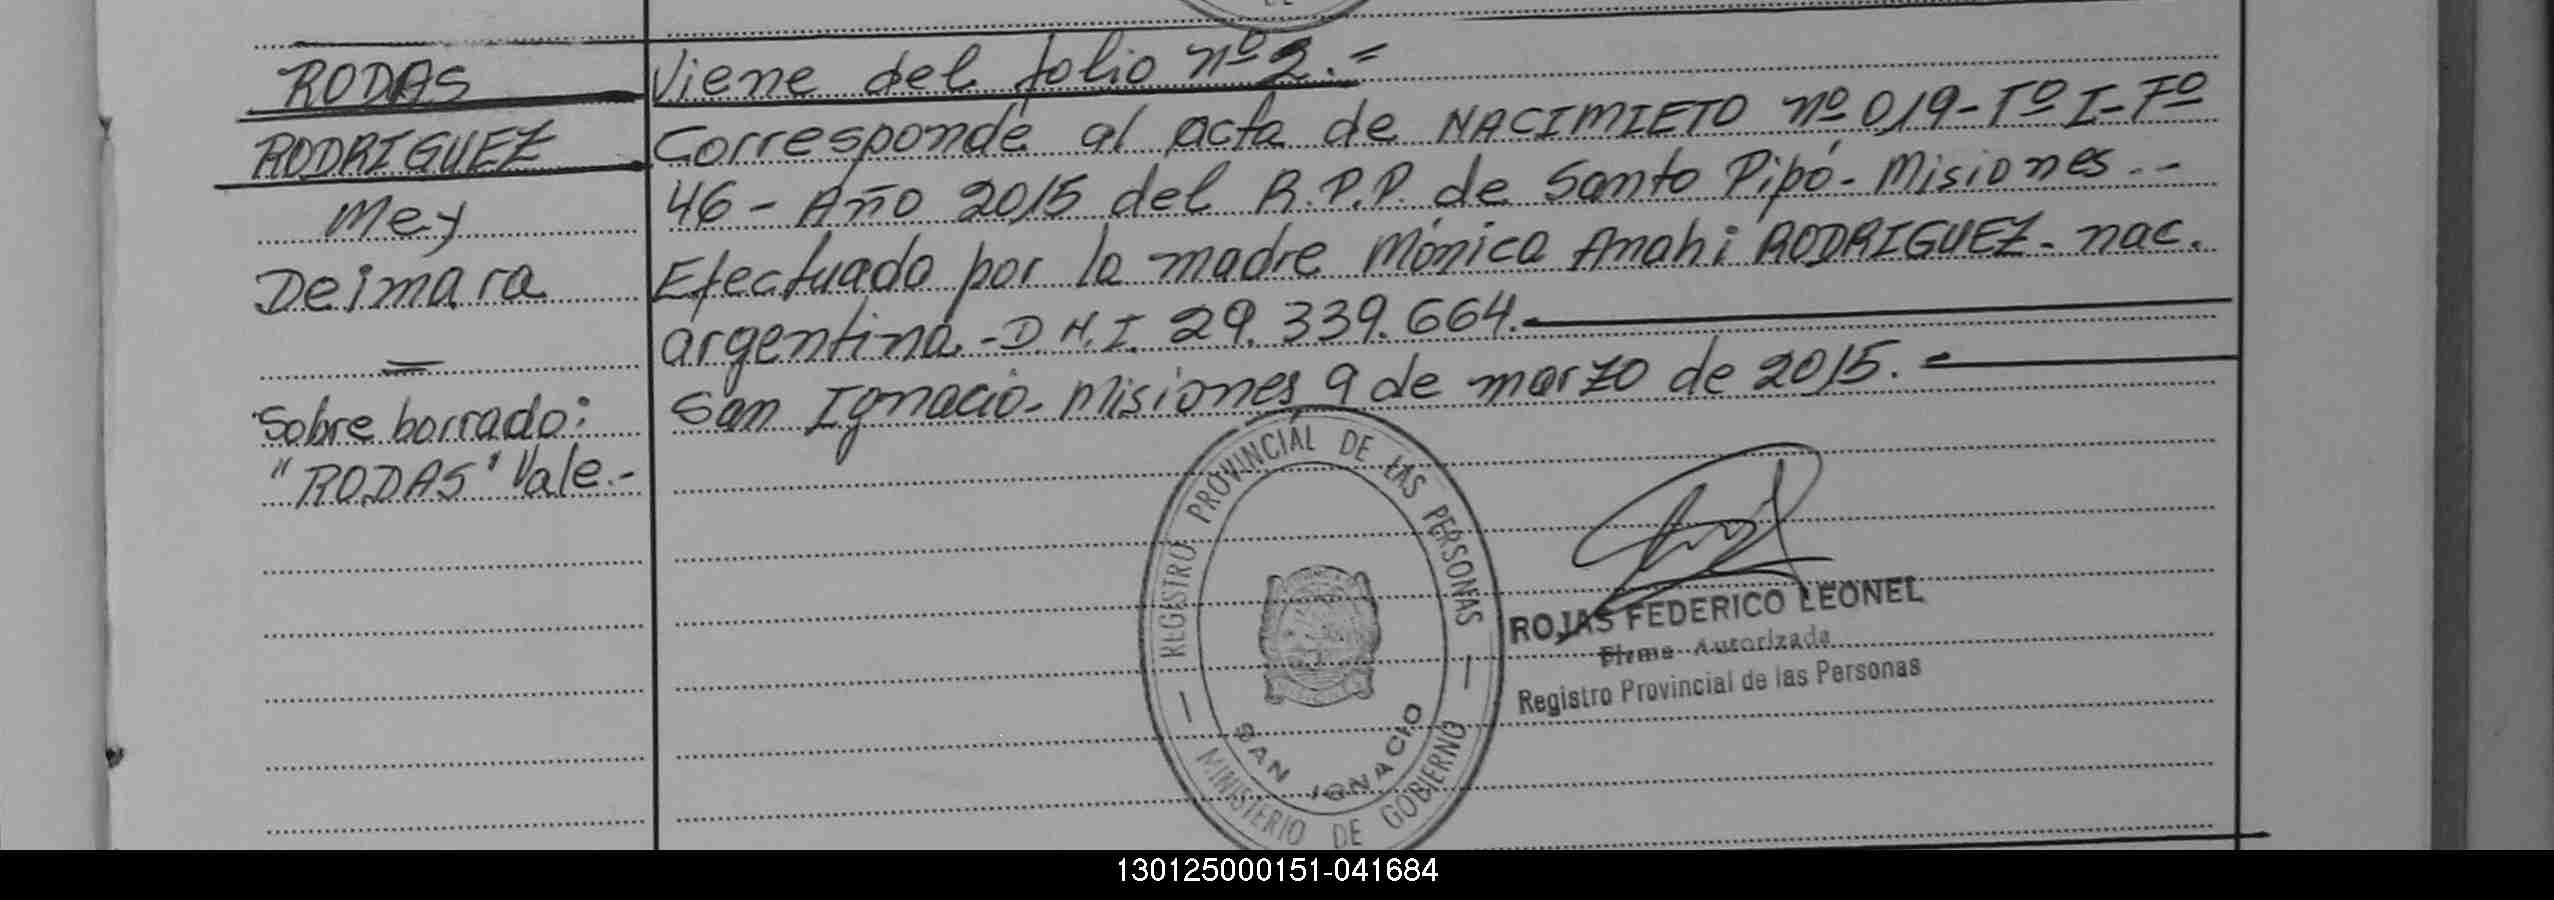 RODAS
RODRIGUEZ
Mey
Deimara
=
Sobre borrado:
"RODAS" Vale.-
Viene del folio nº 2.=
Corresponde al acta de NACIMIETO nº 019-Tº I-Fº
46-Año 2015 del R.P.P. de Santo Pipó-Misiones.--
Efectuado por la madre Mónica Anahi RODRIGUEZ-nac.
argentina.-D.N.I. 29.339.664.-
San Ignacio-Misiones 9 de marzo de 2015.-
REGISTRO PROVINCIAL DE LAS PERSONAS
SAN IGNACIO
MINISTERIO DE GOBIERNO
ROJAS FEDERICO LEONEL
Firma Autorizada
Registro Provincial de las Personas
130125000151-041684